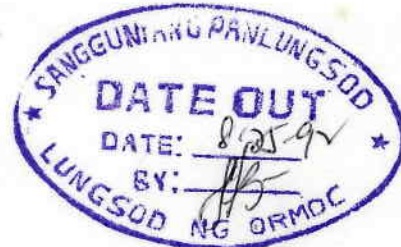 ★ SANGGUNIANG PANLUNGSOD ★
DATE OUT
DATE: 8-25-92
BY:
LUNGSOD NG ORMOC